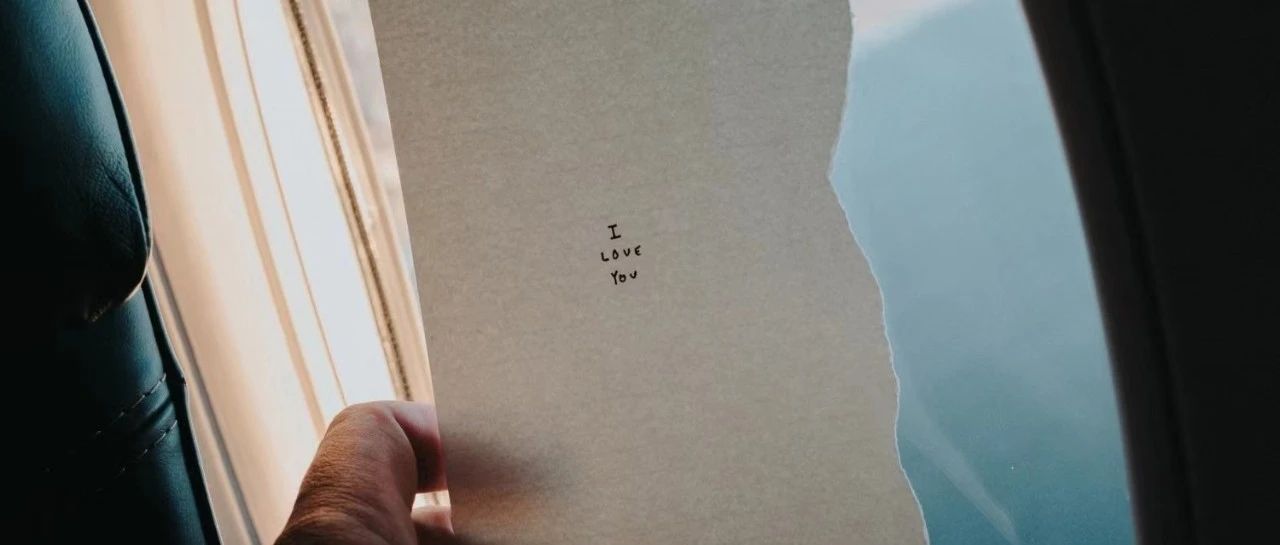 I
LOVE
YOU